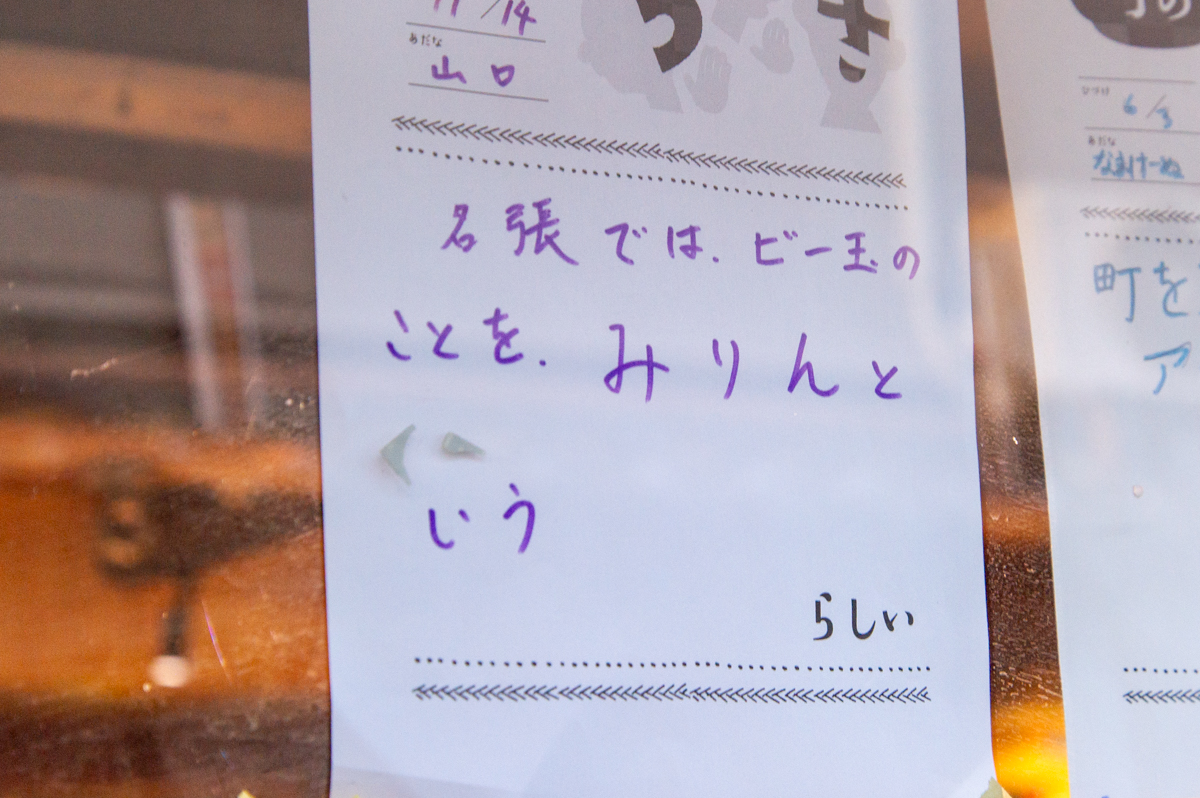 11/14
あだな
山口
名張では、ビー玉の
ことを、みりんと
いう
らしい
ひづけ
6/3
あだな
町を
ア